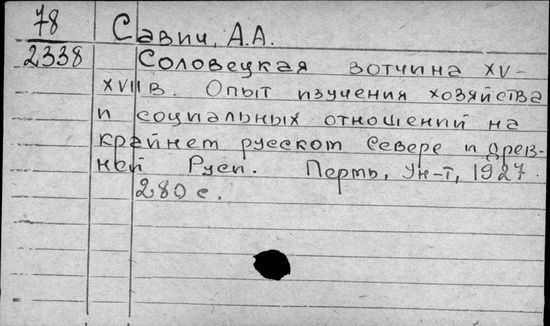 78
2338
Савич, А.А.
Соловецкая вотчина XV-
XVII в. Опыт изучения хозяйства
и социальных отношений на
крайнем русском Севере в древ-
ней Руси. Пермь, Ун-т, 1927.
280 с.